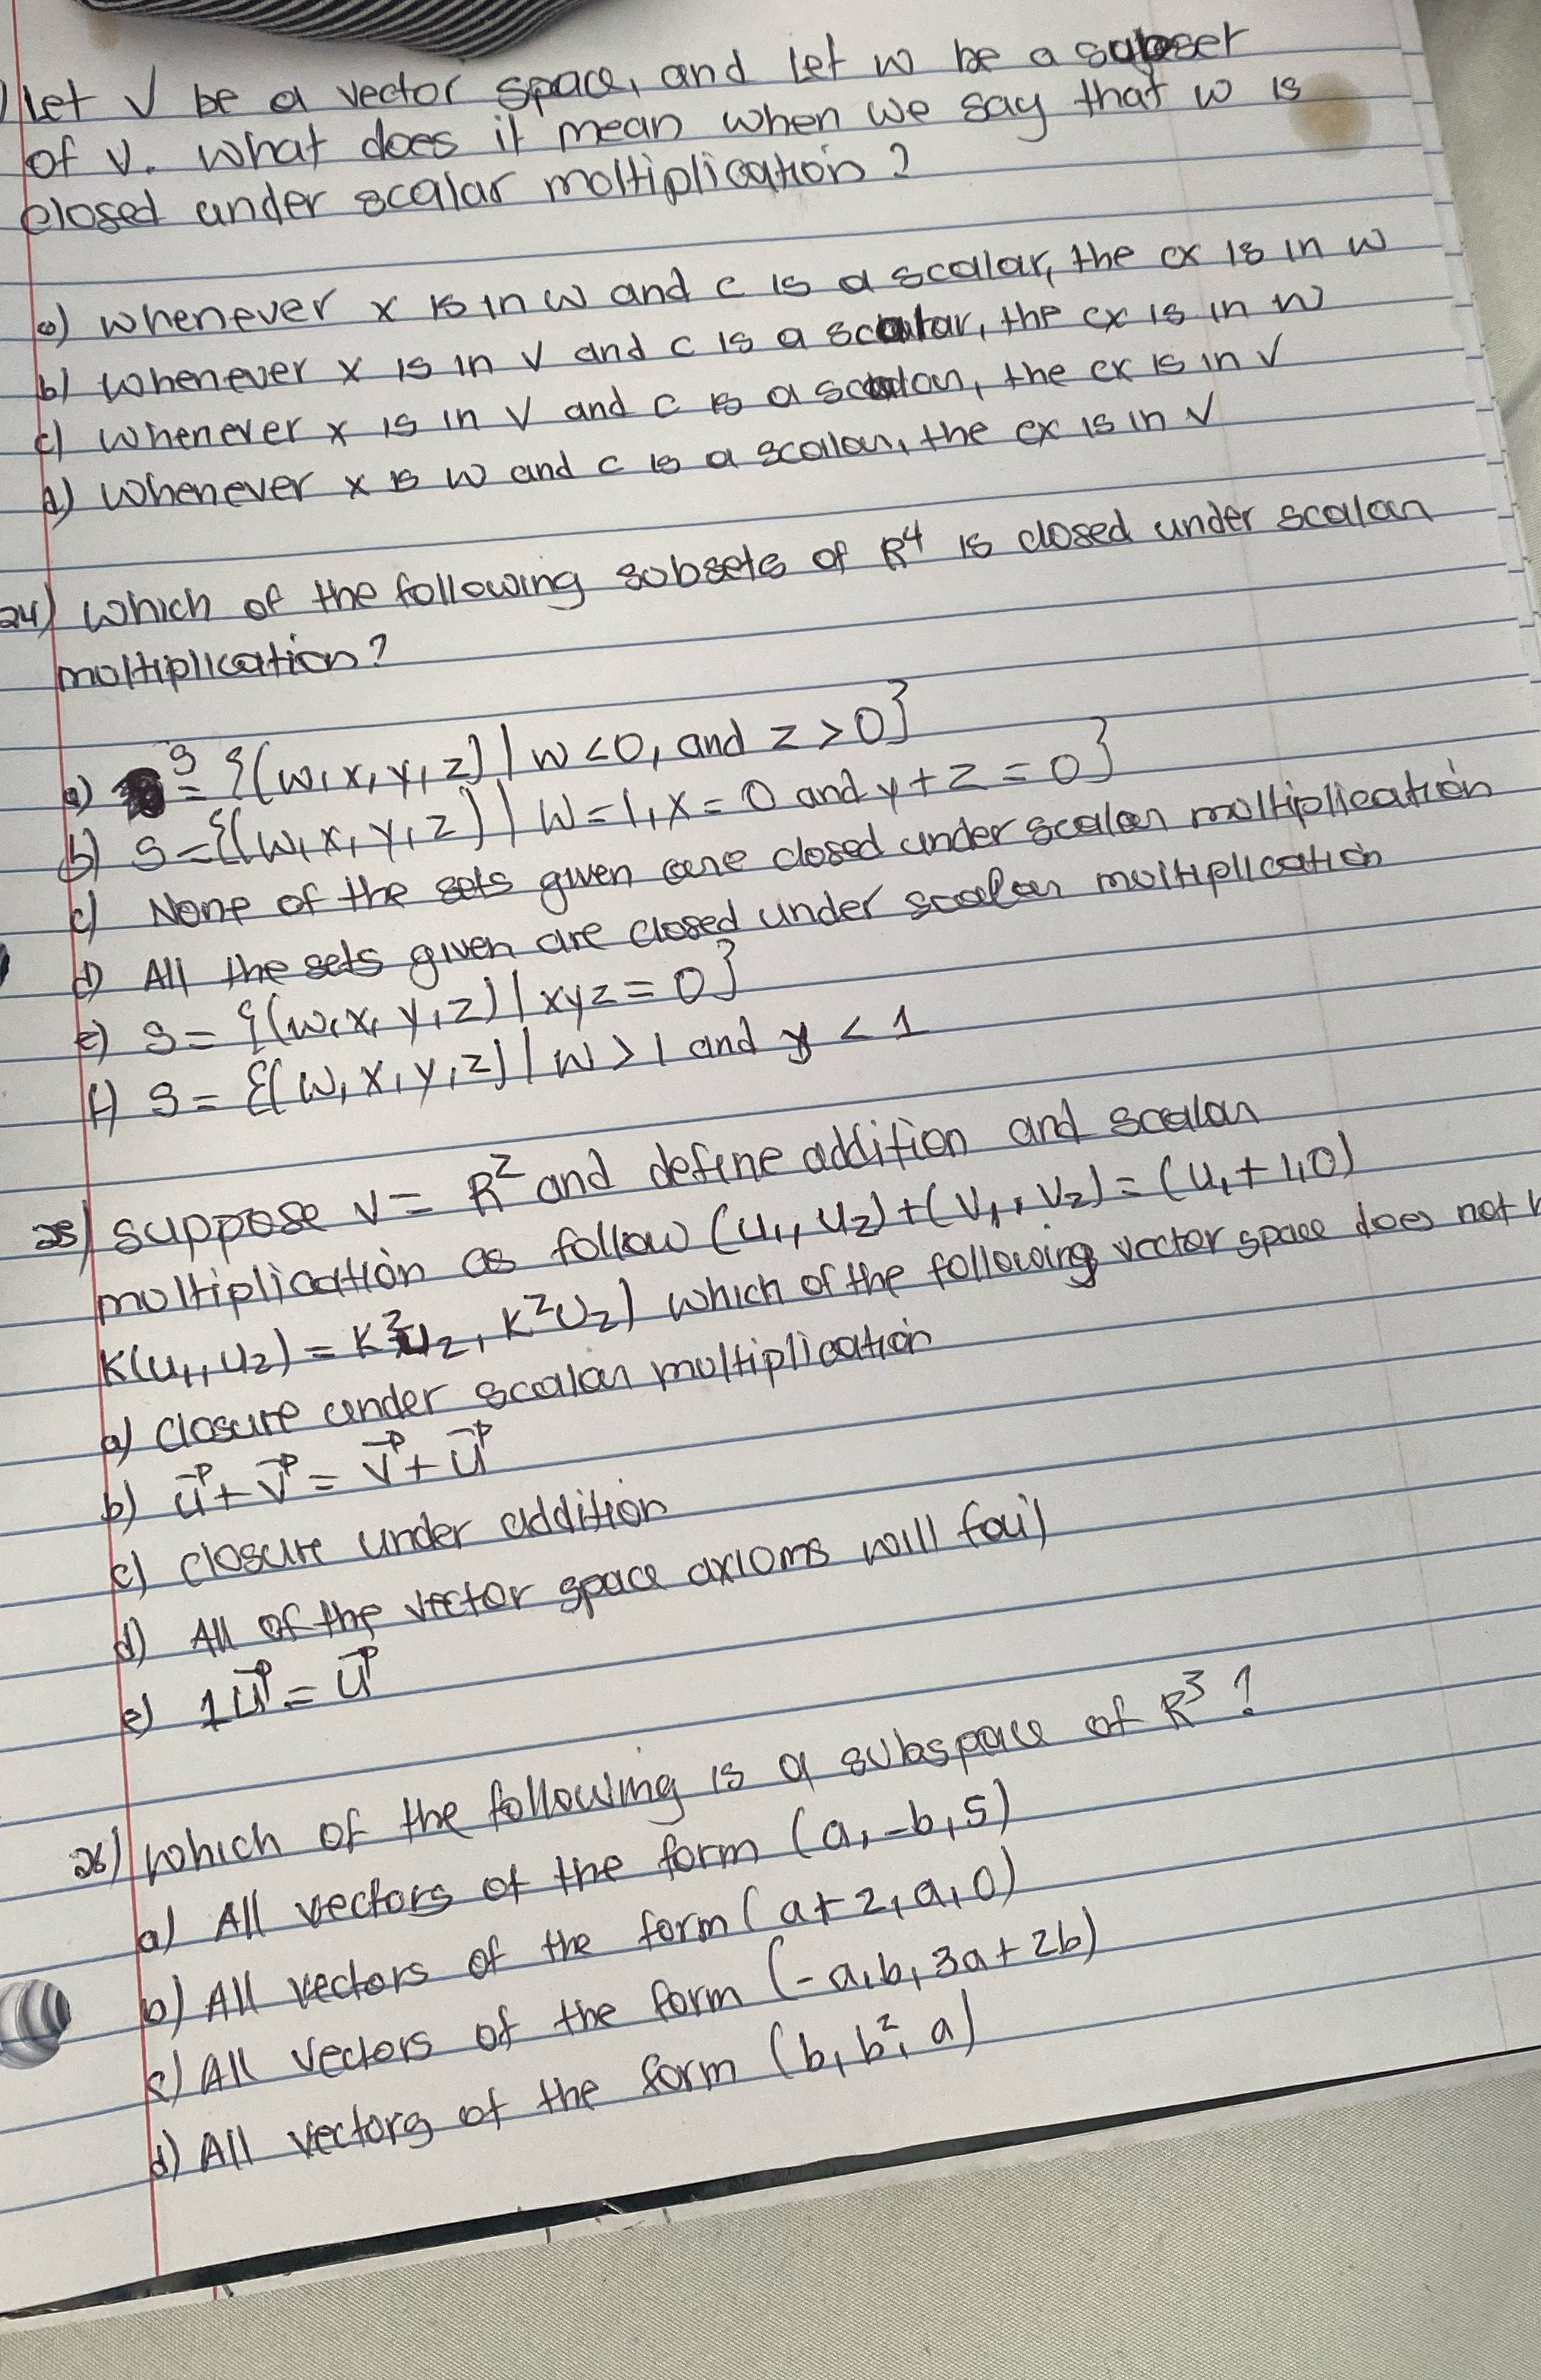 ) Let V be a vector space, and let w be a subset
of V. What does it mean when we say that w is
closed under scalar moltiplication?
a) whenever x is in w and c is a scalar, the cx is in w
b) whenever x is in V and c is a scalar, the cx is in w
c) whenever x is in V and c is a scalar, the cx is in V
d) whenever x is w and c is a scalar, the cx is in V
24) Which of the following subsets of R⁴ is closed under scalar
moltiplication?
a) S = {(w,x,y,z) | w<0, and z>0}
b) S={(w,x,y,z) | w=1, x=0 and y+z=0}
c) None of the sets given are closed under scalar moltiplication
d) All the sets given are closed under scalar moltiplication
e) S= {(w,x,y,z) | xyz=0}
f) S= {(w,x,y,z) | w>1 and y < 1
25) suppose v= R² and define addition and scalar
moltiplication as follow (u₁, u₂)+(v₁, v₂) = (u₁+1,0)
K(u₁,u₂) = K²u₂, K²u₂) which of the following vector space does not
a) closure under scalar moltiplication
b) u⃗+v⃗ = v⃗+u⃗
c) closure under addition
d) All of the vector space axioms will fail
e) 1u⃗ = u⃗
26) which of the following is a subspace of R³?
a) All vectors of the form (a,-b,5)
b) All vectors of the form (a+2,a,0)
c) All vectors of the form (-a,b,3a+2b)
d) All vectors of the form (b,b²,a)